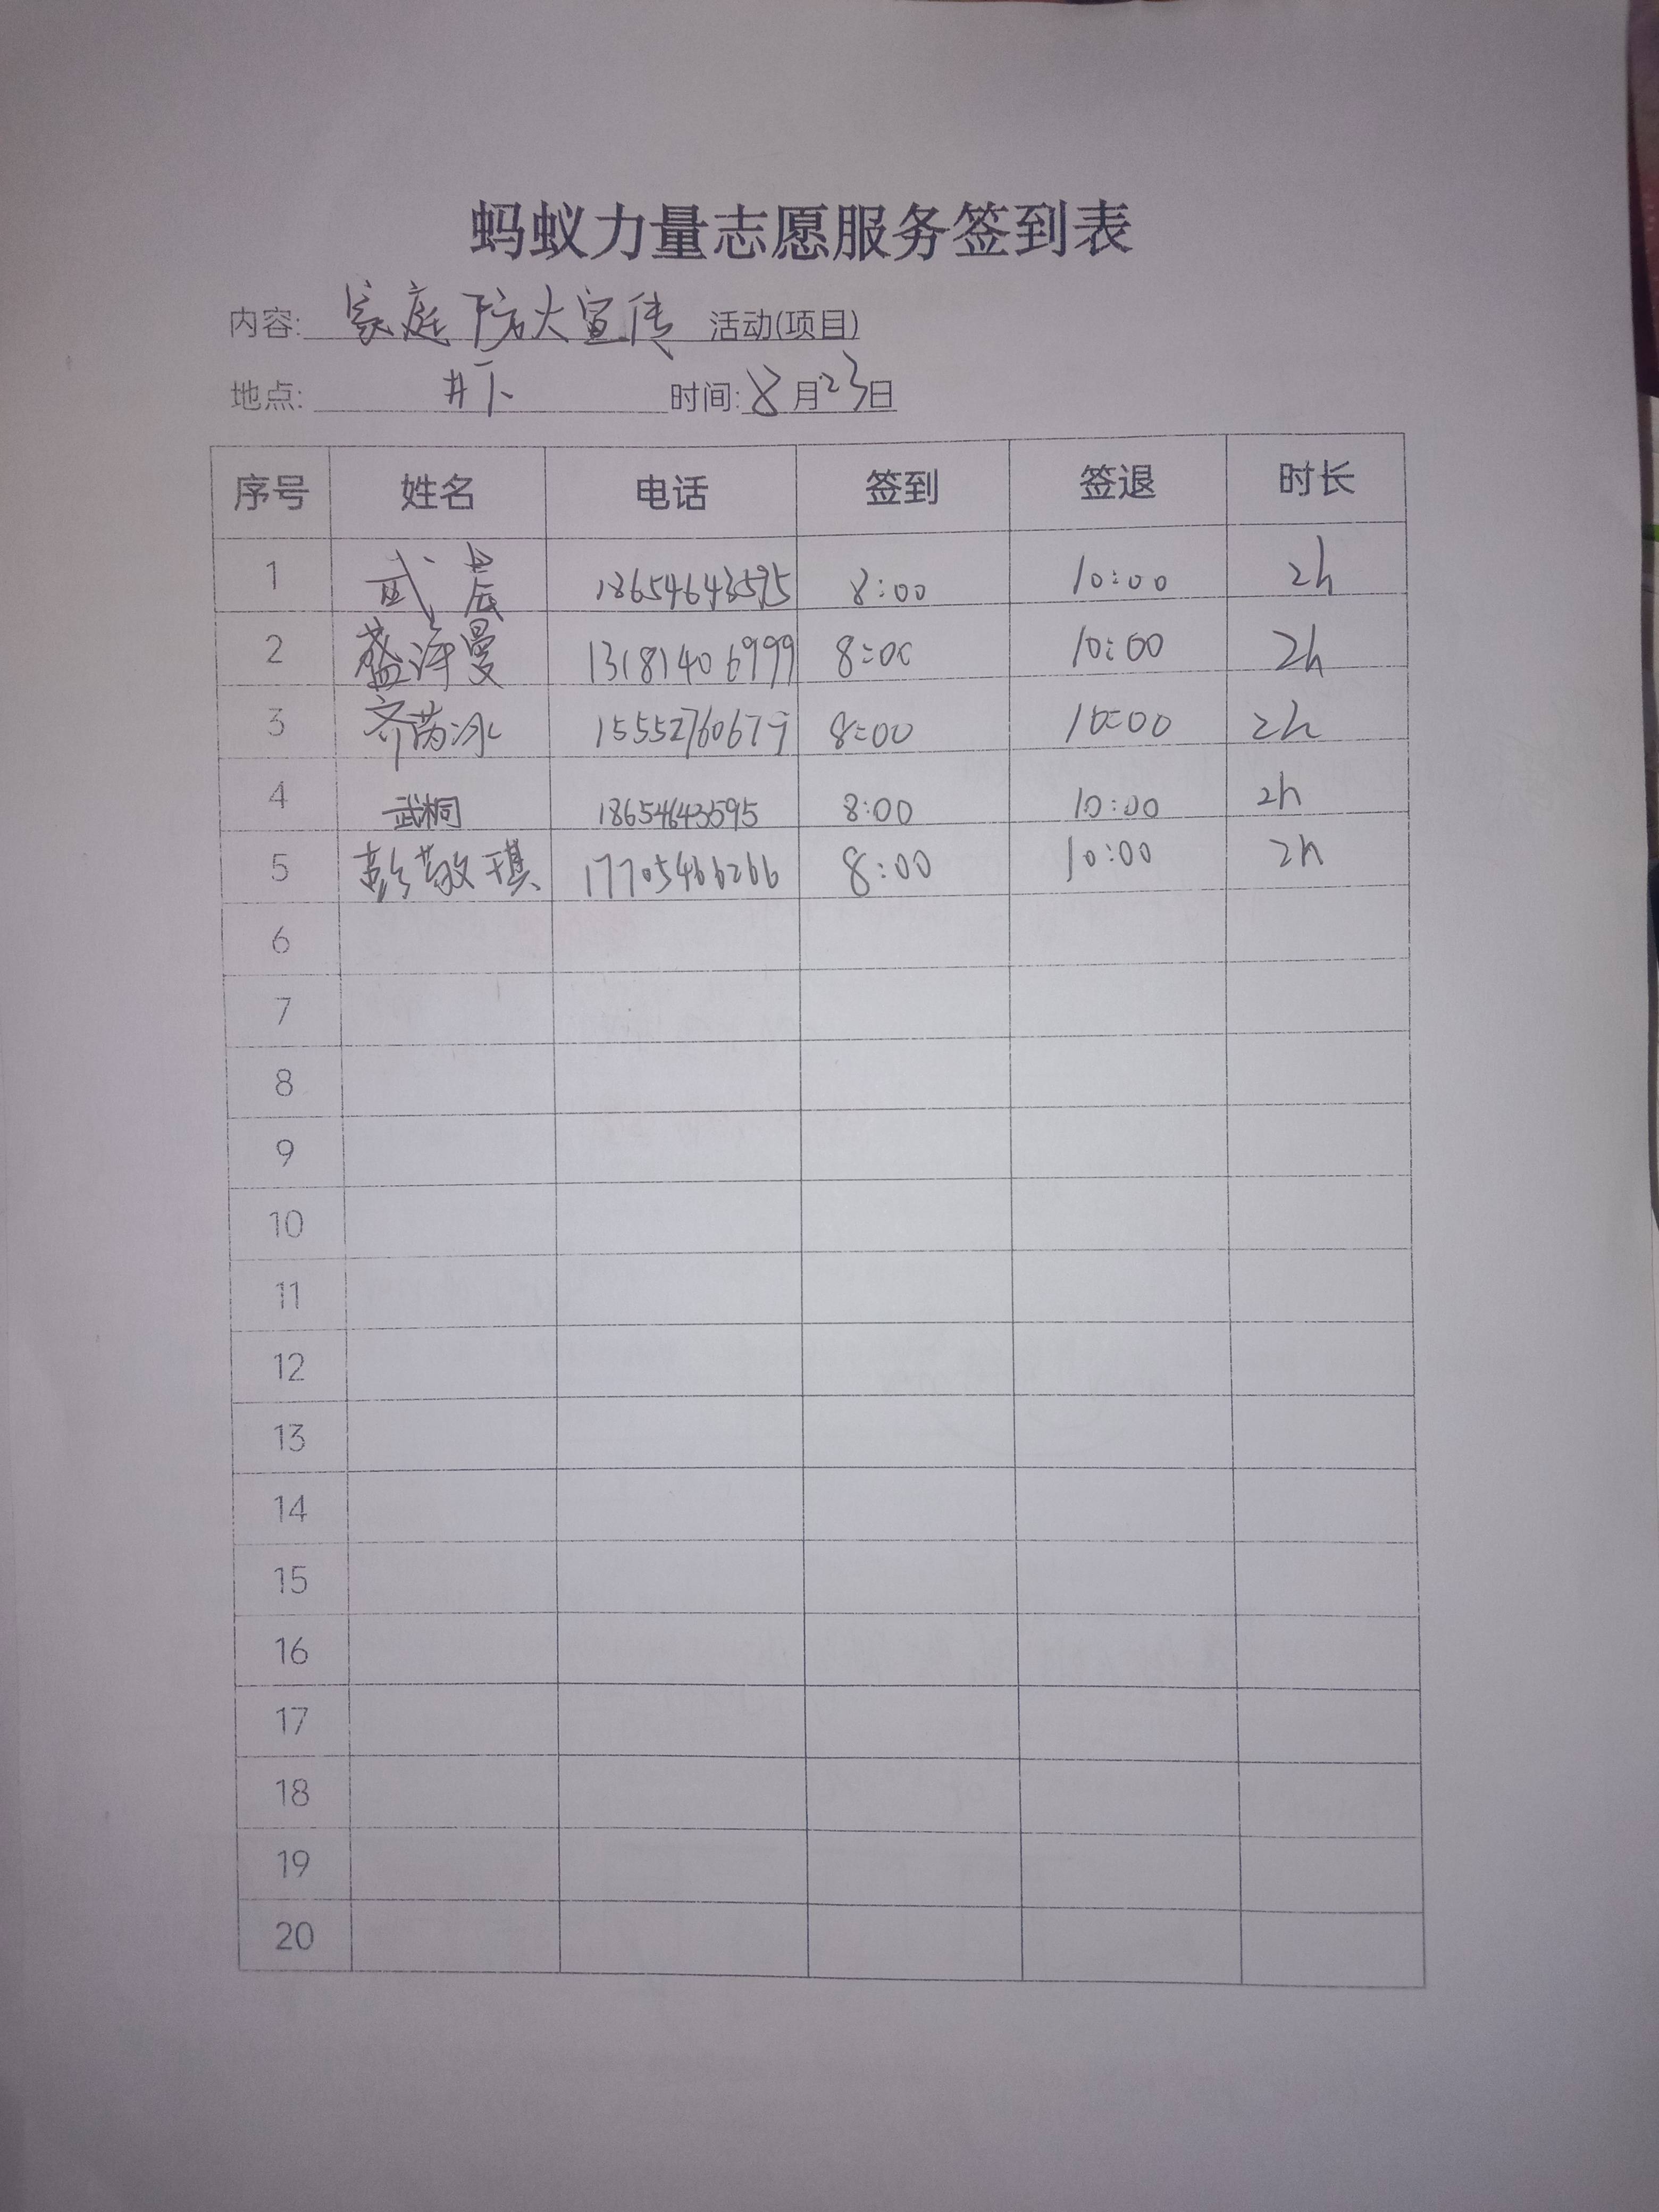 蚂蚁力量志愿服务签到表
内容: 家庭防火宣传 活动(项目)
地点: 井下 时间: 8月23日
序号 姓名 电话 签到 签退 时长
1 武晨 18654643595 8:00 10:00 2h
2 盛泽曼 13181406999 8:00 10:00 2h
3 齐芮冰 15552760679 8:00 10:00 2h
4 武桐 18654643595 8:00 10:00 2h
5 彭敬琪 17705466266 8:00 10:00 2h
6
7
8
9
10
11
12
13
14
15
16
17
18
19
20